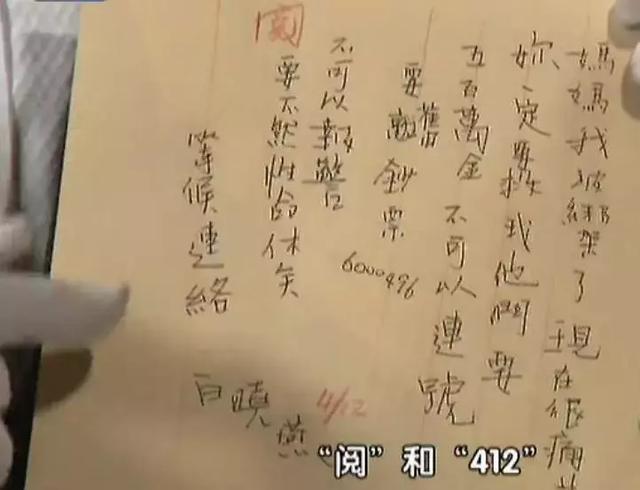 媽媽我被綁架了現在很痛
妳一定要救我他們要
五百萬金 不可以連號
要舊鈔票
6000496
不可以報警
要不然性命休矣
閱
等候連絡
白曉燕
4/12
“阅”和“412”